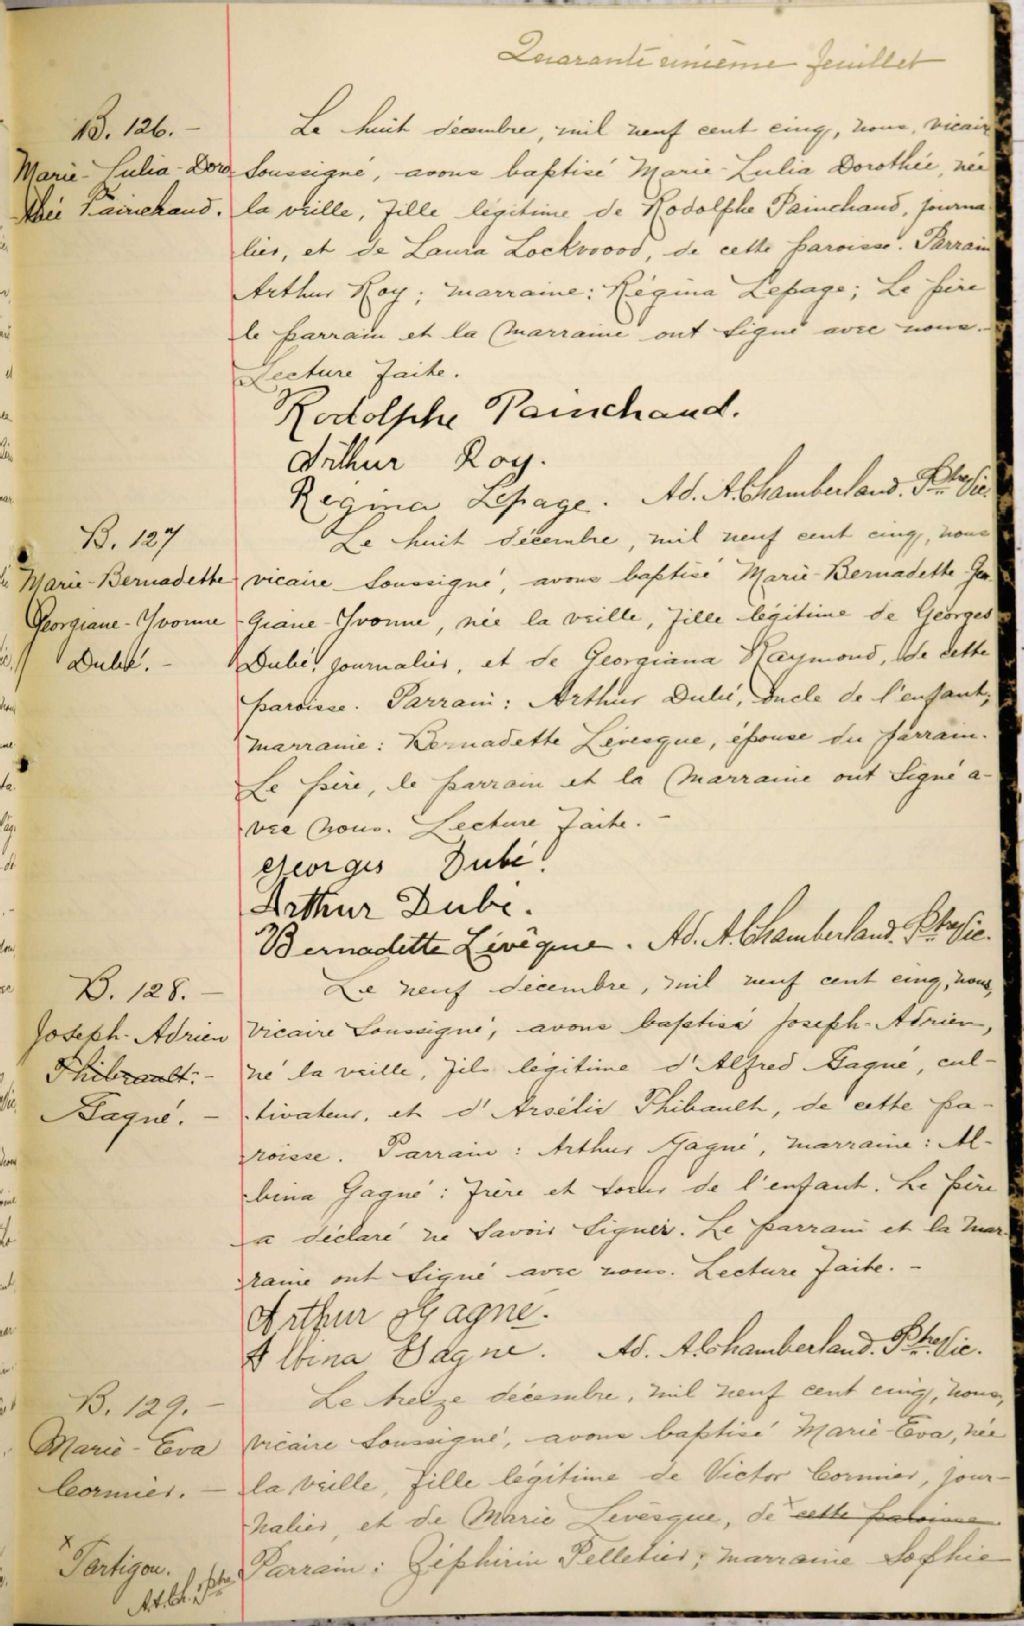 Quarante unième feuillet
B. 126. –
Marie-Lulia-Doro
thée Painchaud.
Le huit décembre, mil neuf cent cinq, nous, vicaire
soussigné, avons baptisé Marie-Lulia Dorothée, née
la veille, fille légitime de Rodolphe Painchaud, journa
lier, et de Laura Lockwood, de cette paroisse. Parrain
Arthur Roy; marraine: Régina Lepage; Le père
le parrain et la marraine ont signé avec nous.–
Lecture faite.
Rodolphe Painchaud.
Arthur Roy.
Regina Lepage. Ad. A. Chamberland. Ptre Vic.
B. 127
Marie-Bernadette
Georgiane-Yvonne
Dubé. –
Le huit décembre, mil neuf cent cinq, nous
vicaire soussigné, avons baptisé Marie-Bernadette-Geor
giane-Yvonne, née la veille, fille légitime de Georges
Dubé, journalier, et de Georgiana Raymond, de cette
paroisse. Parrain: Arthur Dubé, oncle de l'enfant;
marraine: Bernadette Lévesque, épouse du parrain.
Le père, le parrain et la marraine ont signé a-
vec nous. Lecture faite. –
Georges Dubé.
Arthur Dubé.
Bernadette Lévêque. Ad. A. Chamberland. Ptre Vic.
B. 128. –
Joseph-Adrien
Thibeault. –
Gagné. –
Le neuf décembre, mil neuf cent cinq, nous,
vicaire soussigné, avons baptisé Joseph-Adrien,
né la veille, fils légitime d'Alfred Gagné, cul-
tivateur, et d'Arsélie Thibault, de cette pa-
roisse. Parrain: Arthur Gagné, marraine: Al-
bina Gagné: frère et soeur de l'enfant. Le père
a déclaré ne savoir signer. Le parrain et la mar-
raine ont signé avec nous. Lecture faite. –
Arthur Gagné.
Albina Gagné. Ad. A. Chamberland. Ptre Vic.
B. 129. –
Marie-Eva
Cormier. –
Le treize décembre, mil neuf cent cinq, nous,
vicaire soussigné, avons baptisé Marie-Eva, née
la veille, fille légitime de Victor Cormier, jour-
nalier, et de Marie Levèsque, de x cette paroisse
Parrain: Zéphirin Pelletier; marraine Sophie
x Tartigou.
A.A.Ch. Ptre